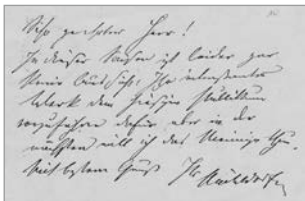 Sehr geehrter Herr!
In dieser Saison ist leider gar
keine Aussicht, Ihr interessantes
Werk dem hiesigen Publikum
vorzuführen dafür aber in der
nächsten will ich das Meinige thun.
Mit bestem Gruß Ihr